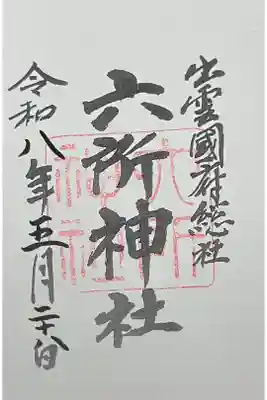 出雲國府総社
六所神社
六所神社
令和八年五月日